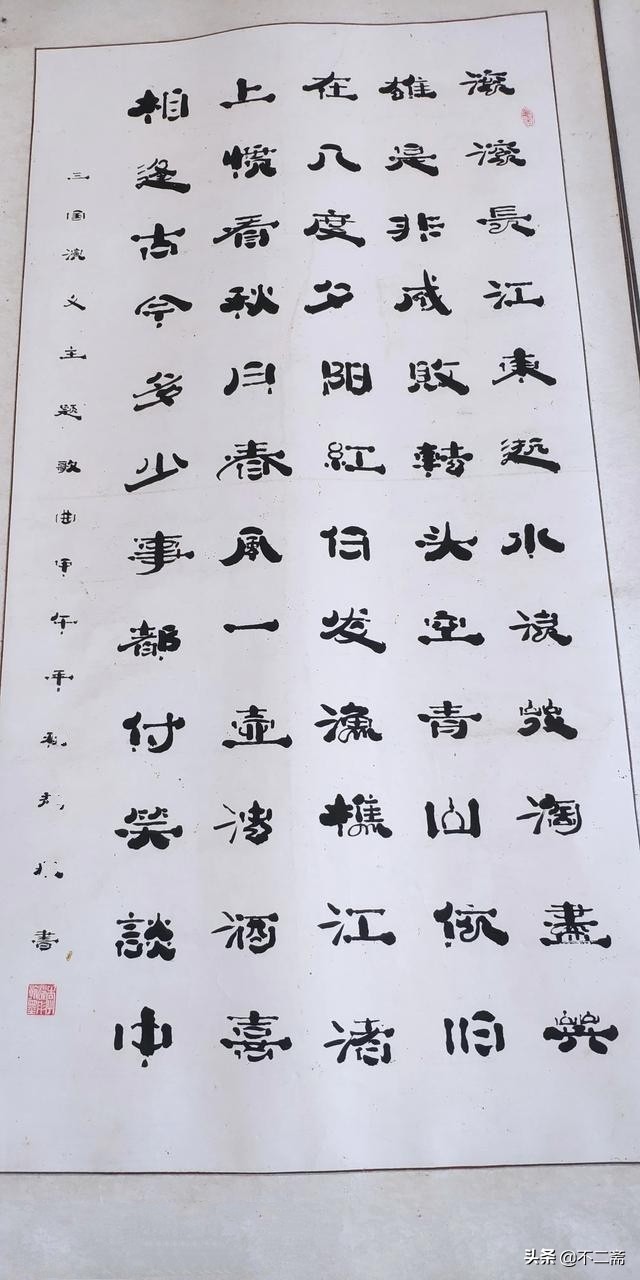 滚滚長江東逝水浪花淘盡英
雄是非成敗轉头空青山依旧
在几度夕阳紅白发渔樵江渚
上慣看秋月春風一壶浊酒喜
相逢古今多少事都付笑談中
三国演义主题歌曲甲午年書
头条 @不二斋